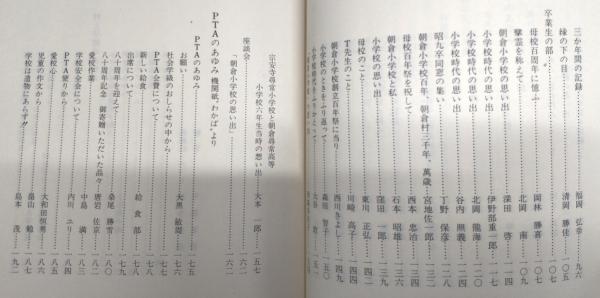 三か年間の記録……福岡 弘幸…九六
縁の下の日……清岡 勝佳…一〇五
卒業生の部
母校百周年に憶ふ……岡林 勝喜…一〇七
撃雲を称えて……北岡 南…一〇九
朝倉小学校の思い出……深田 啓…一一四
小学校時代の思い出……伊野部重一郎…一一七
小学校時代の思い出……北岡 龍海…一二〇
小学校の思い出……谷内 照義…一二四
昭九卒同窓の集い……丁野 保彦…一二八
朝倉小学校百年、朝倉村三千年、萬歳…宮地佐一郎…一三一
母校百年祭を祝して……西本 忠治…一三三
朝倉小学校と私……石本 昭雄…一三六
母校のこと……窪田 一郎…一三九
小学校の思い出……東川 正弘…一四二
T先生のこと……川崎 高子…一四四
朝倉小学校創立百年祭に当り……西川 きよし…一四九
小学校のときをふり返って……森田 智子…一五〇
小学校時代をふりかえって……大谷
座談会
宗安寺尋常小学校と朝倉尋常高等
小学校六年生当時の思い出……大本 一郎…一五七
「朝倉小学校の思い出」……一六二
PTAのあゆみ 機関紙〝わかば〟より
PTAのあゆみ……一七五
お願い……大黒 敏周…一七六
社会学級のおしらせの中から……一七七
PTA会費について……一七八
新しい給食……給食部…一七八
出席について……一七九
八十周年を迎えて……桑尾 勝雪…一八〇
八十周年記念 御寄贈いただいた品々……唐岩 佐京…一八二
愛校作業……中島 満…一八三
学校安全会について……内川 ユリ…一八四
PTA便りから……一八四
愛校心……大和田恒男…一八五
児童の作文から……畠山 勉…一八七
学校は遺物にあらず!!……島本 茂…一九二